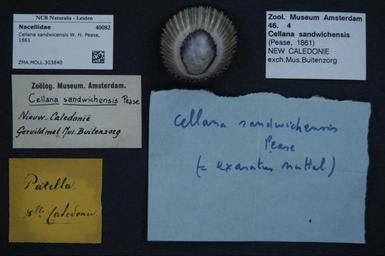 NCB Naturalis - Leiden
Nacellidae 40082
Cellana sandwicensis W. H. Pease,
1861
ZMA.MOLL.303840
Zool. Museum Amsterdam
46. 4
Cellana sandwichensis
(Pease, 1861)
NEW CALEDONIE
exch.Mus.Buitenzorg
Zoölog. Museum. Amsterdam.
Cellana sandwichensis Pease
Nieuw. Caledonië
Geruild met Mus. Buitenzorg
Cellana sandwichensis
Pease
(= exaratus Nuttal)
Patella
Nlle Caledonie